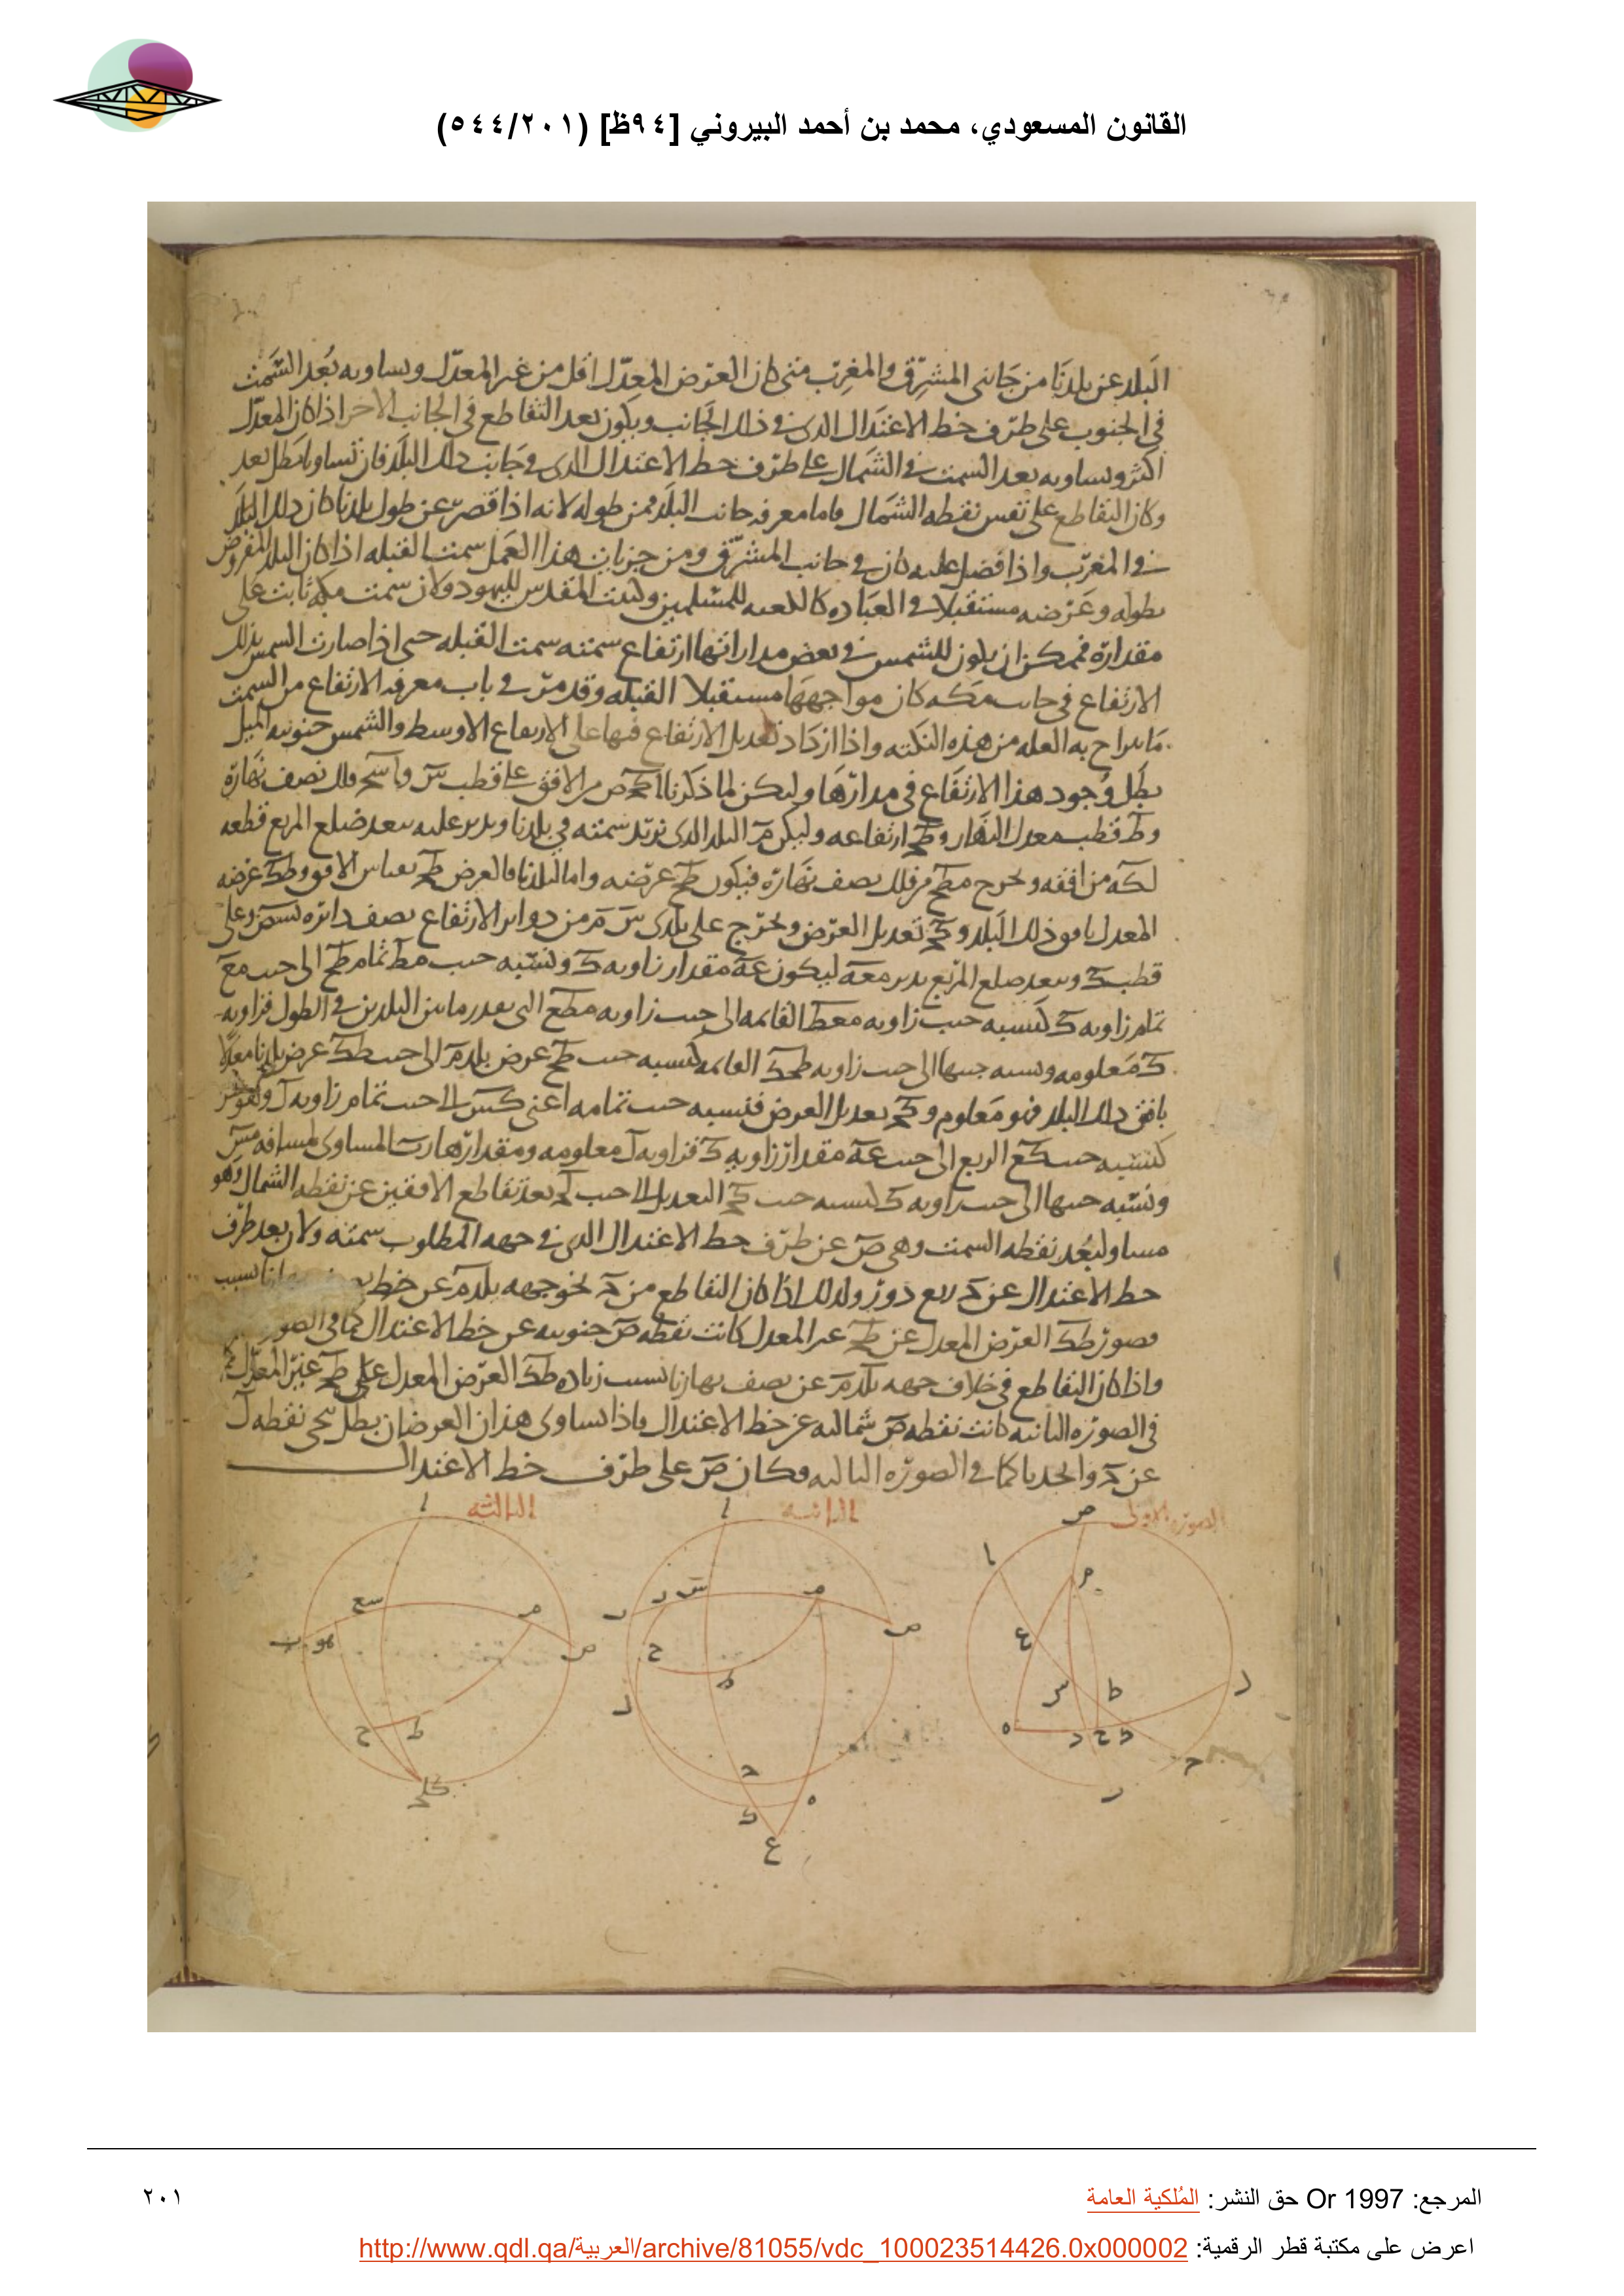 القانون المسعودي، محمد بن أحمد البيروني [٩٤ظ] (٥٤٤/٢٠١)
البلد عن بلدنا من جانبى المشرق والمغرب متى كان العرض المعدل اقل من غير المعدل ويساويه بعد السمت
فى الجنوب على طرف خط الاعتدال الذى فى ذلك الجانب ويكون بعد التقاطع فى الجانب الاخر اذا كان المعدل
اكثر ويساويه بعد السمت فى الشمال على طرف خط الاعتدال الذى فى جانب ذلك البلد فان تساويا بطل بعد
وكان التقاطع على نفس نقطه الشمال فاما معرفه جانب البلد فمن طوله لانه اذا قصر عن طول بلدنا كان ذلك البلد
فى المغرب واذا فضل عليه كان فى جانب المشرق ومن جزيات هذا العمل سمت القبله اذا كان البلد المفروض
بطوله وعرضه مستقبلا فى العباده كالكعبه للمسلمين وكبيت المقدس لليهود ولان سمت مكه ثابت على
مقداره فممكن ان يكون للشمس فى بعض مداراتها ارتفاع سمته سمت القبله حتى اذا صارت الشمس بذلك
الارتفاع فى جانب مكه كان مواجهها مستقبلا القبله وقد مر فى باب معرفه الارتفاع من السمت
ما يزاح به العله من هذه النكته واذا ازداد تعديل الارتفاع فيها على الارتفاع الاوسط والشمس جنوبيه الميل
بطل وجود هذا الارتفاع فى مدارها وليكن لما ذكرنا من الافق على قطب س فلك نصف نهاره
وط قطب معدل النهار وطح ارتفاعه وليكن م البلد الذى نريد سمته فى بلدنا وندير عليه ببعد ضلع المربع قطعه
لكه من افقه ونخرج مطح من فلك نصف نهاره فيكون طح عرضه واما لبلدنا فالعرض طح بقياس الافق وطك عرضه
المعدل بافق ذلك البلد وكح تعديل العرض ونخرج على بلدى س م من دواير الارتفاع نصف دائره وعلى
قطب ك وببعد ضلع المربع ندير معه ليكون عه مقدار زاويه ك ونسبه جيب مط تمام طح الى جيب مع
تمام زاويه ك كنسبه جيب زاويه معط القائمه الى جيب زاويه مطع التى بقدر ما بين البلدين فى الطول فزاويه
ك معلومه ونسبه جيبها الى جيب زاويه طحك القائمه كنسبه جيب طح عرض بلد م الى جيب طك عرض بلدنا معدلا
بافق ذلك البلد فهو معلوم وكح تعديل العرض فنسبه جيب تمامه اعنى كس الى جيب تمام زاويه ل
كنسبه جيب كع الربع الى جيب عه مقدار زاويه ك فزاويه ل معلومه ومقدارها المساوى لمسافه مس
ونسبه جيبها الى جيب زاويه ك كنسبه جيب كح التعديل الى جيب لح بعد تقاطع الافقين عن نقطه الشمال وهو
مساو لبعد نقطه السمت وهى ص عن طرف خط الاعتدال الذى فى جهه المطلوب سمته ولان بعد طرف
خط الاعتدال عن ح ربع دور ولذلك اذا كان التقاطع من ح نحو جهه بلد م عن خط بسبب
قصور طك العرض المعدل عن طح غير المعدل كانت نقطه ص جنوبيه عن خط الاعتدال كما فى الصوره
واذا كان التقاطع فى خلاف جهه بلد م عن نصف نهارنا بسبب زياده طك العرض المعدل على طح غير المعدل
فى الصوره الثانيه كانت نقطه ص شماليه عن خط الاعتدال فاذا تساوى هذان العرضان بطل تنحى نقطه ل
عن ح واتحدتا كما فى الصوره الثالثه وكان ص على طرف خط الاعتدال
الصوره الاولى
الثانيه
الثالثه
المرجع: Or 1997 حق النشر: المُلكية العامة
٢٠١
اعرض على مكتبة قطر الرقمية: http://www.qdl.qa/العربية/archive/81055/vdc_100023514426.0x000002